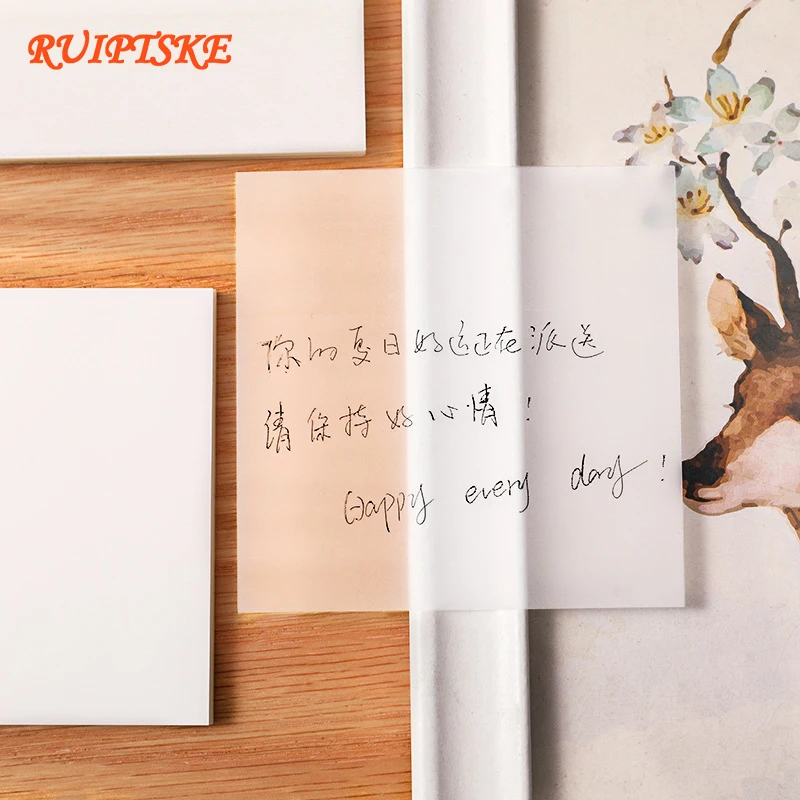 RUIPTSKE
你的夏日好运正在派送
请保持好心情!
Happy every day!